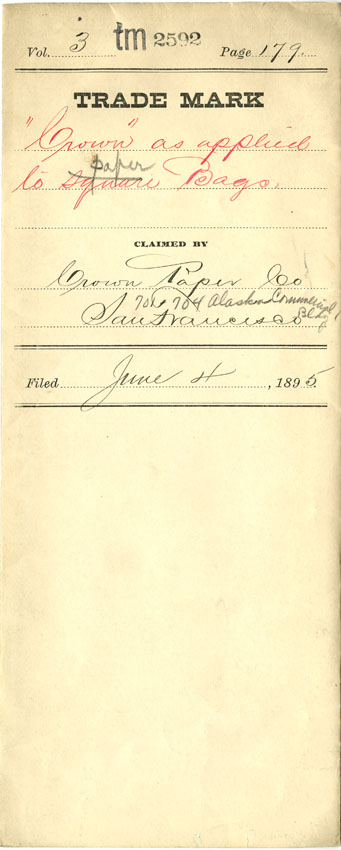 Vol. 3 tm 2592 Page 179.
TRADE MARK
"Crown" as applied
paper
to square Bags.
CLAIMED BY
Crown Paper Co
702 704 Alaska Commercial
Bldg
San Francisco
Filed June 4, 1895.